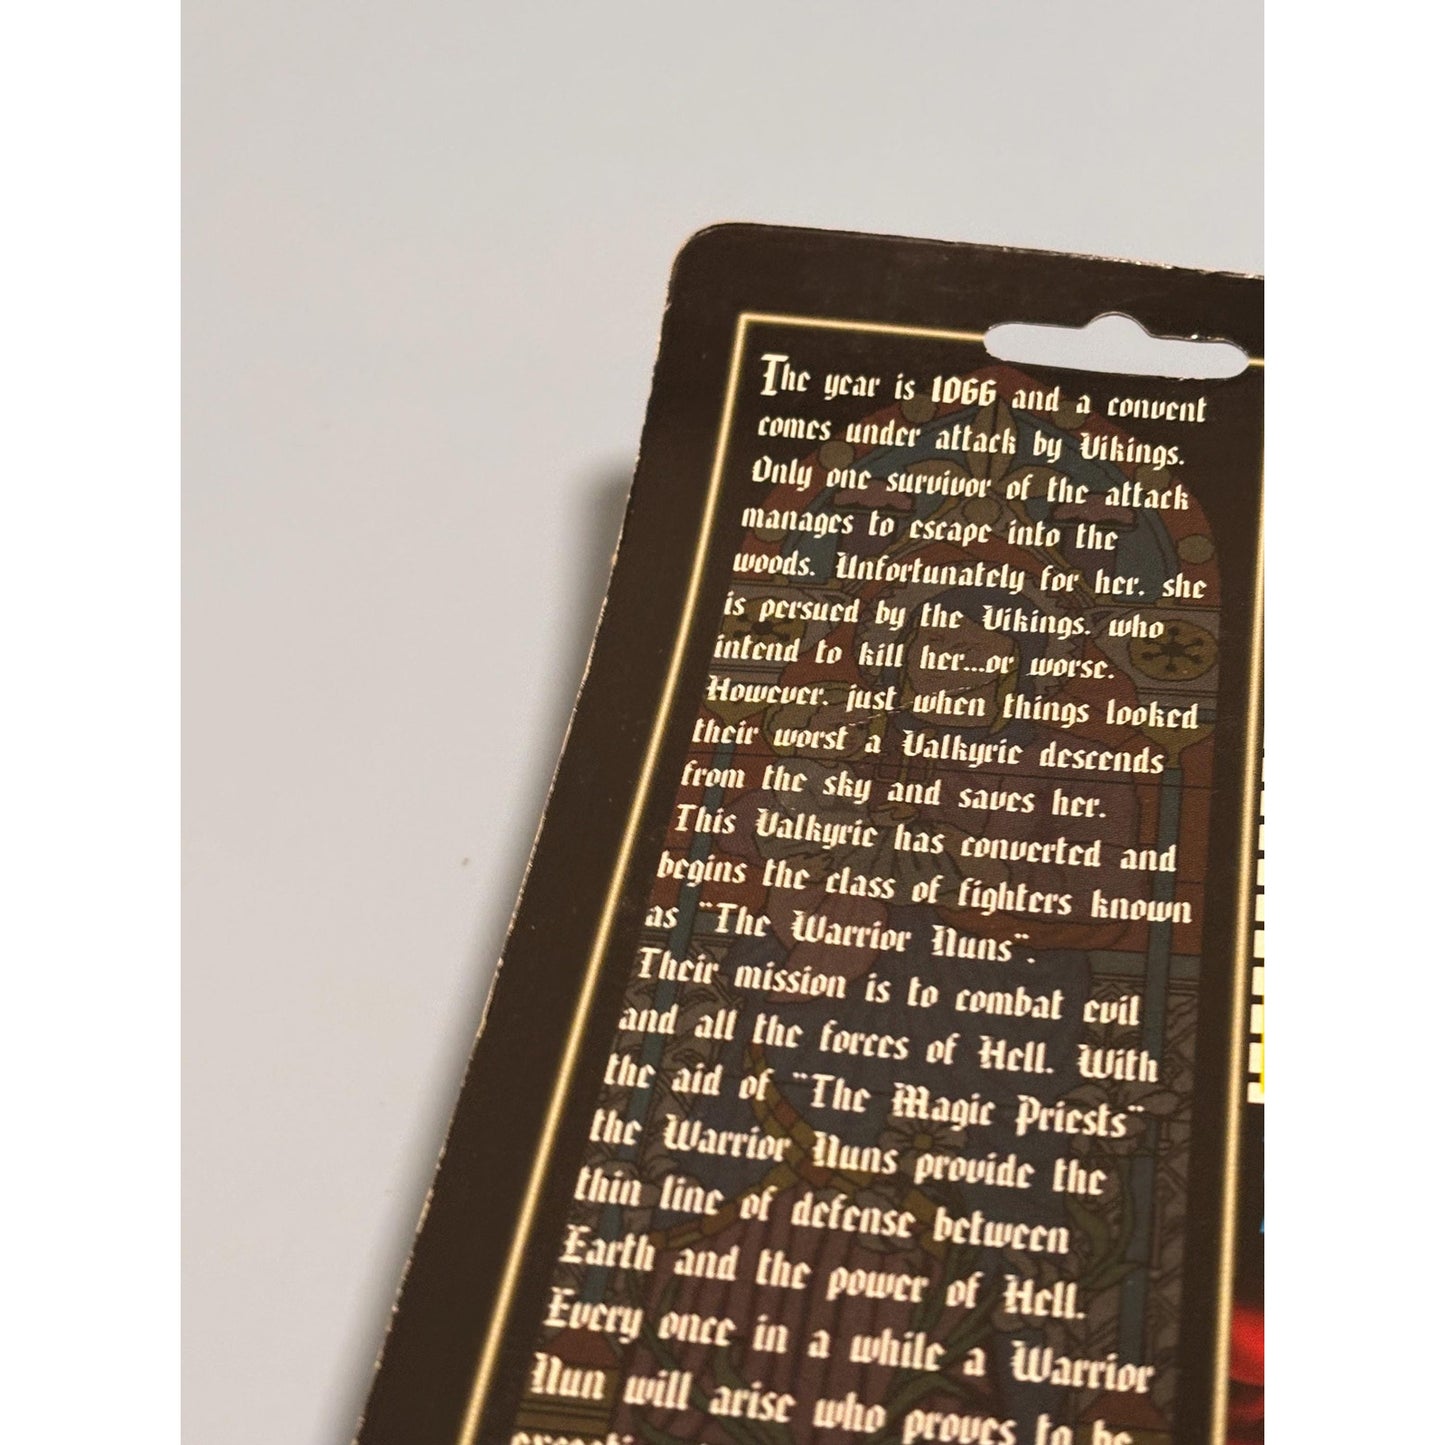 The year is 1066 and a convent
comes under attack by Vikings.
Only one survivor of the attack
manages to escape into the
woods. Unfortunately for her, she
is persued by the Vikings, who
intend to kill her...or worse.
However, just when things looked
their worst a Valkyrie descends
from the sky and saves her.
This Valkyrie has converted and
begins the class of fighters known
as "The Warrior Nuns".
Their mission is to combat evil
and all the forces of Hell. With
the aid of "The Magic Priests"
the Warrior Nuns provide the
thin line of defense between
Earth and the power of Hell.
Every once in a while a Warrior
Nun will arise who proves to be